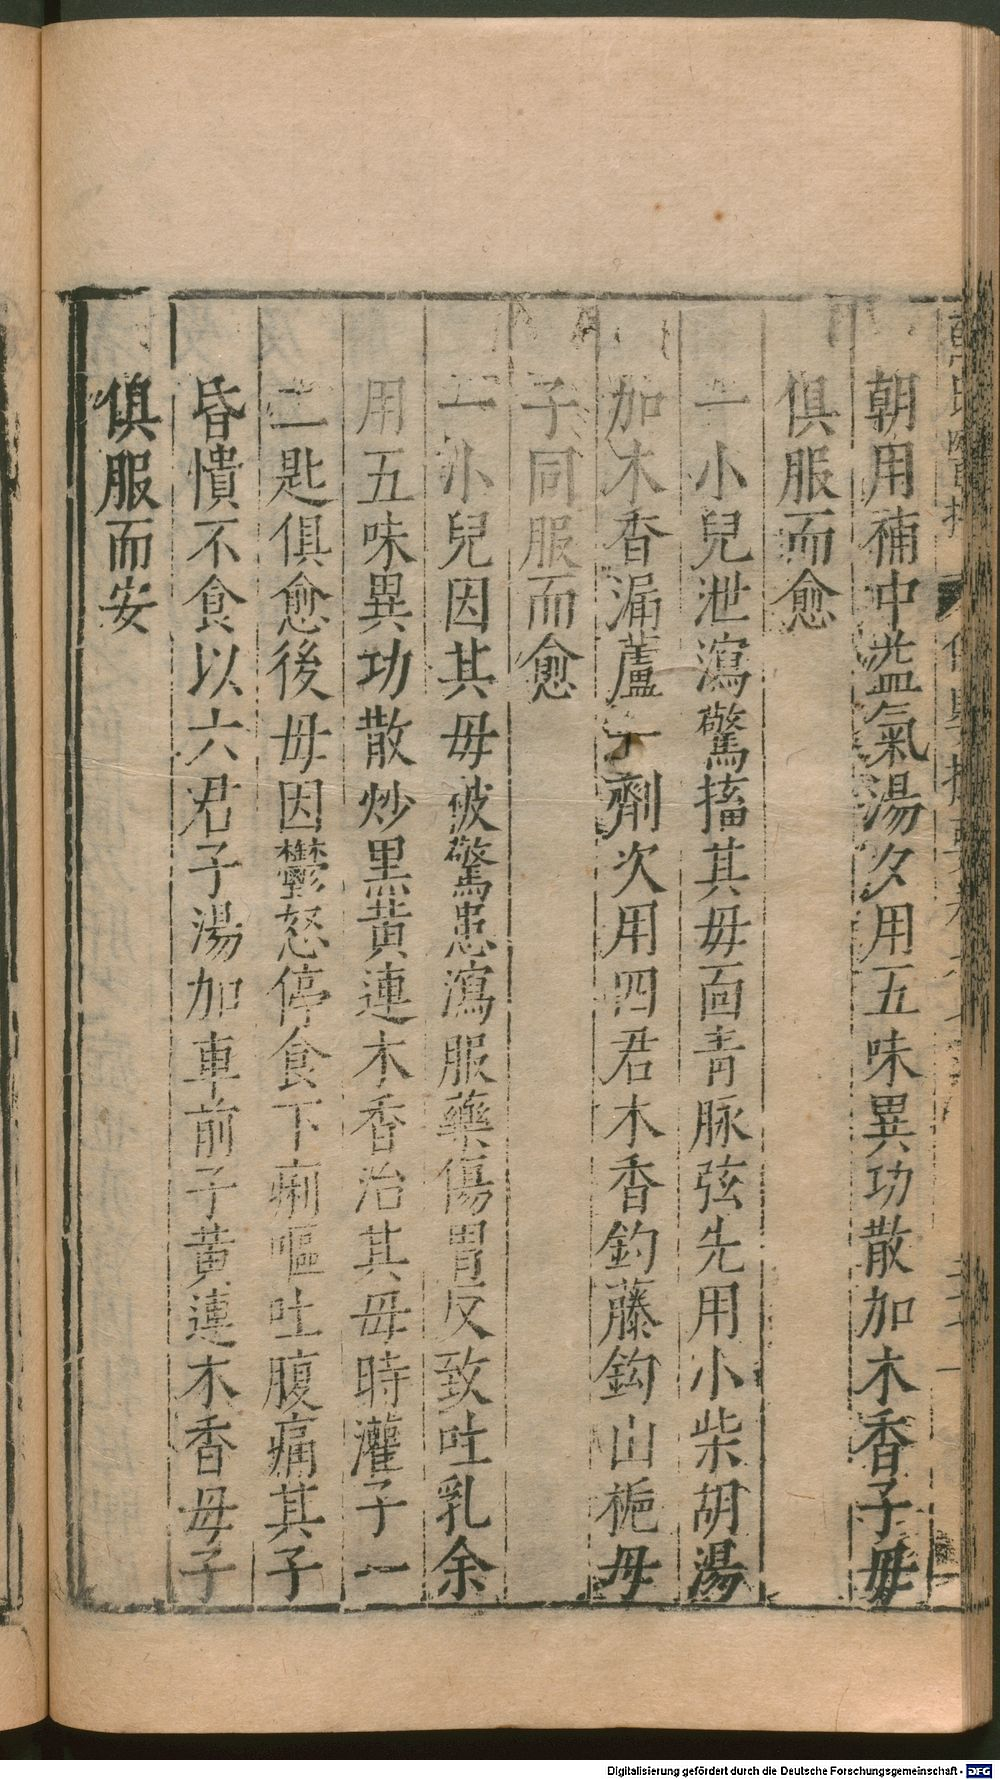 朝用補中益氣湯夕用五味異功散加木香子母
俱服而愈
一小兒泄瀉驚搐其母面青脉弦先用小柴胡湯
加木香漏蘆一劑次用四君木香釣藤鈎山梔母
子同服而愈
一小兒因其母被驚患瀉服藥傷胃反致吐乳余
用五味異功散炒黑黃連木香治其母時灌子一
二匙俱愈後母因鬱怒停食下痢嘔吐腹痛其子
昏憒不食以六君子湯加車前子黃連木香母子
俱服而安
Digitalisierung gefördert durch die Deutsche Forschungsgemeinschaft - DFG